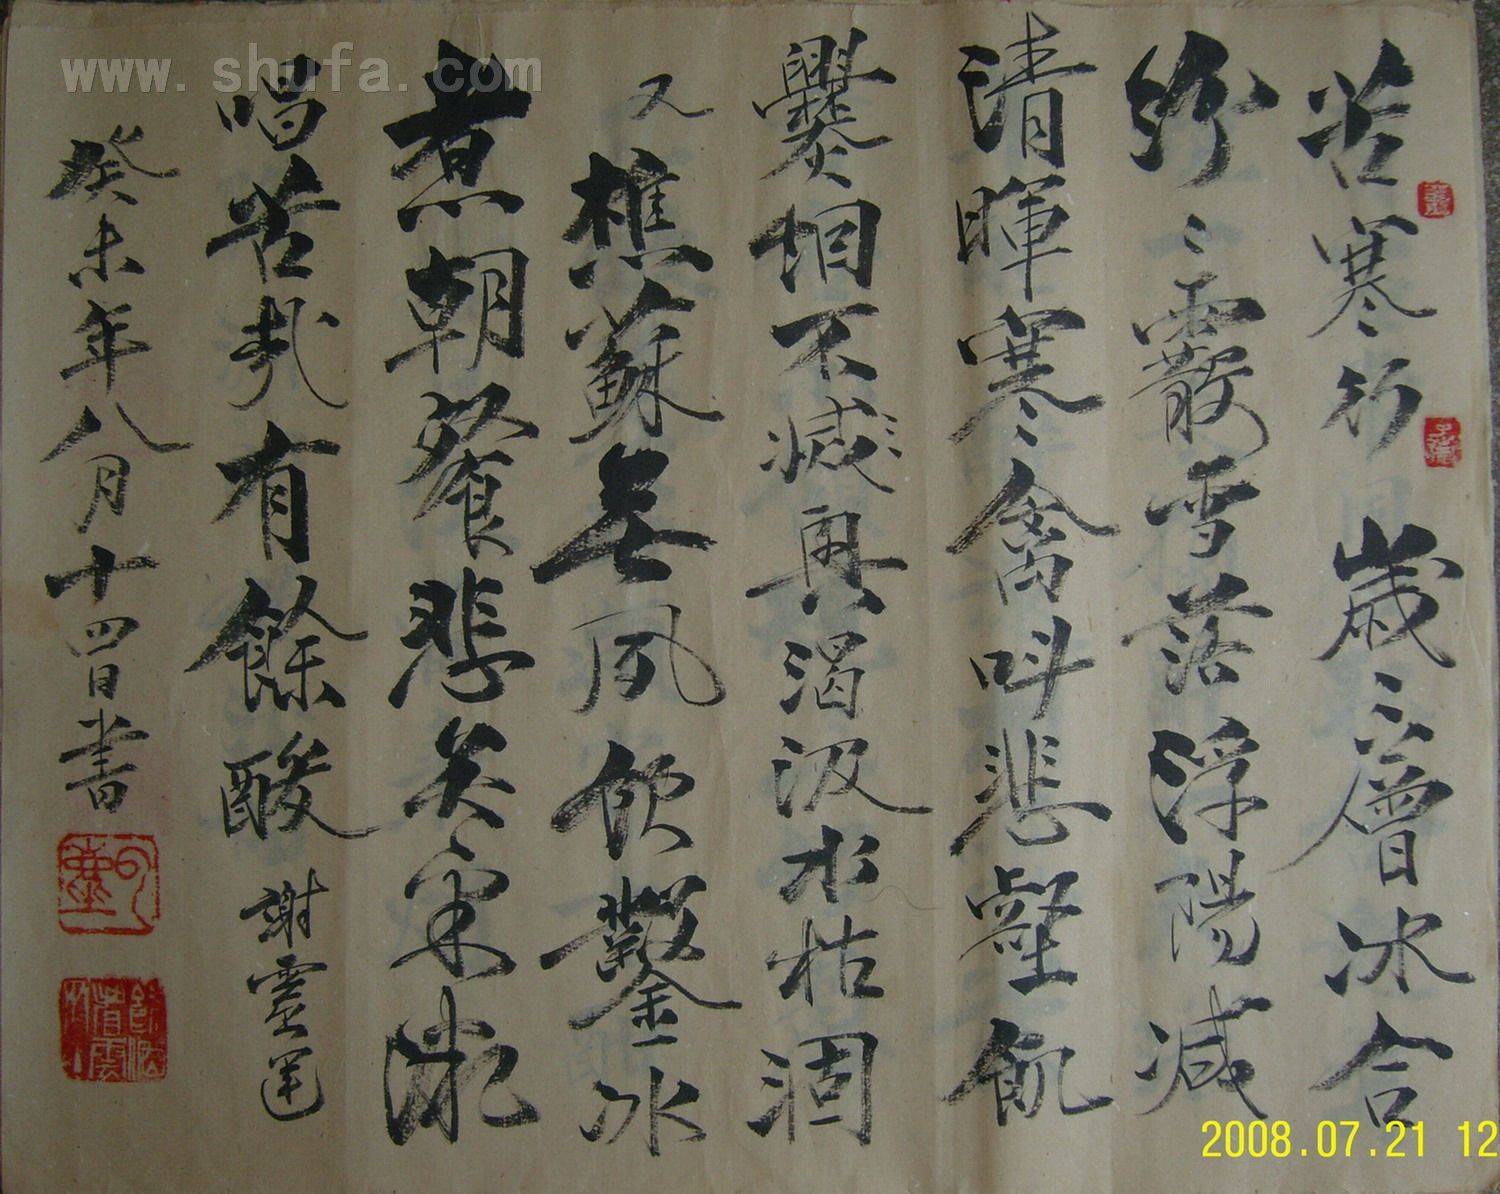 苦寒行 歲〻層冰合
紛〻霰雪落浮陽減
清暉寒禽叫悲壑飢
爨烟不減興渴汲水枯涸
又樵蘇無夙飲鑿冰
煮朝餐悲矣采薇
唱苦哉有餘酸 謝靈運
癸未年八月十四日書
www.shufa.com
2008.07.21 12